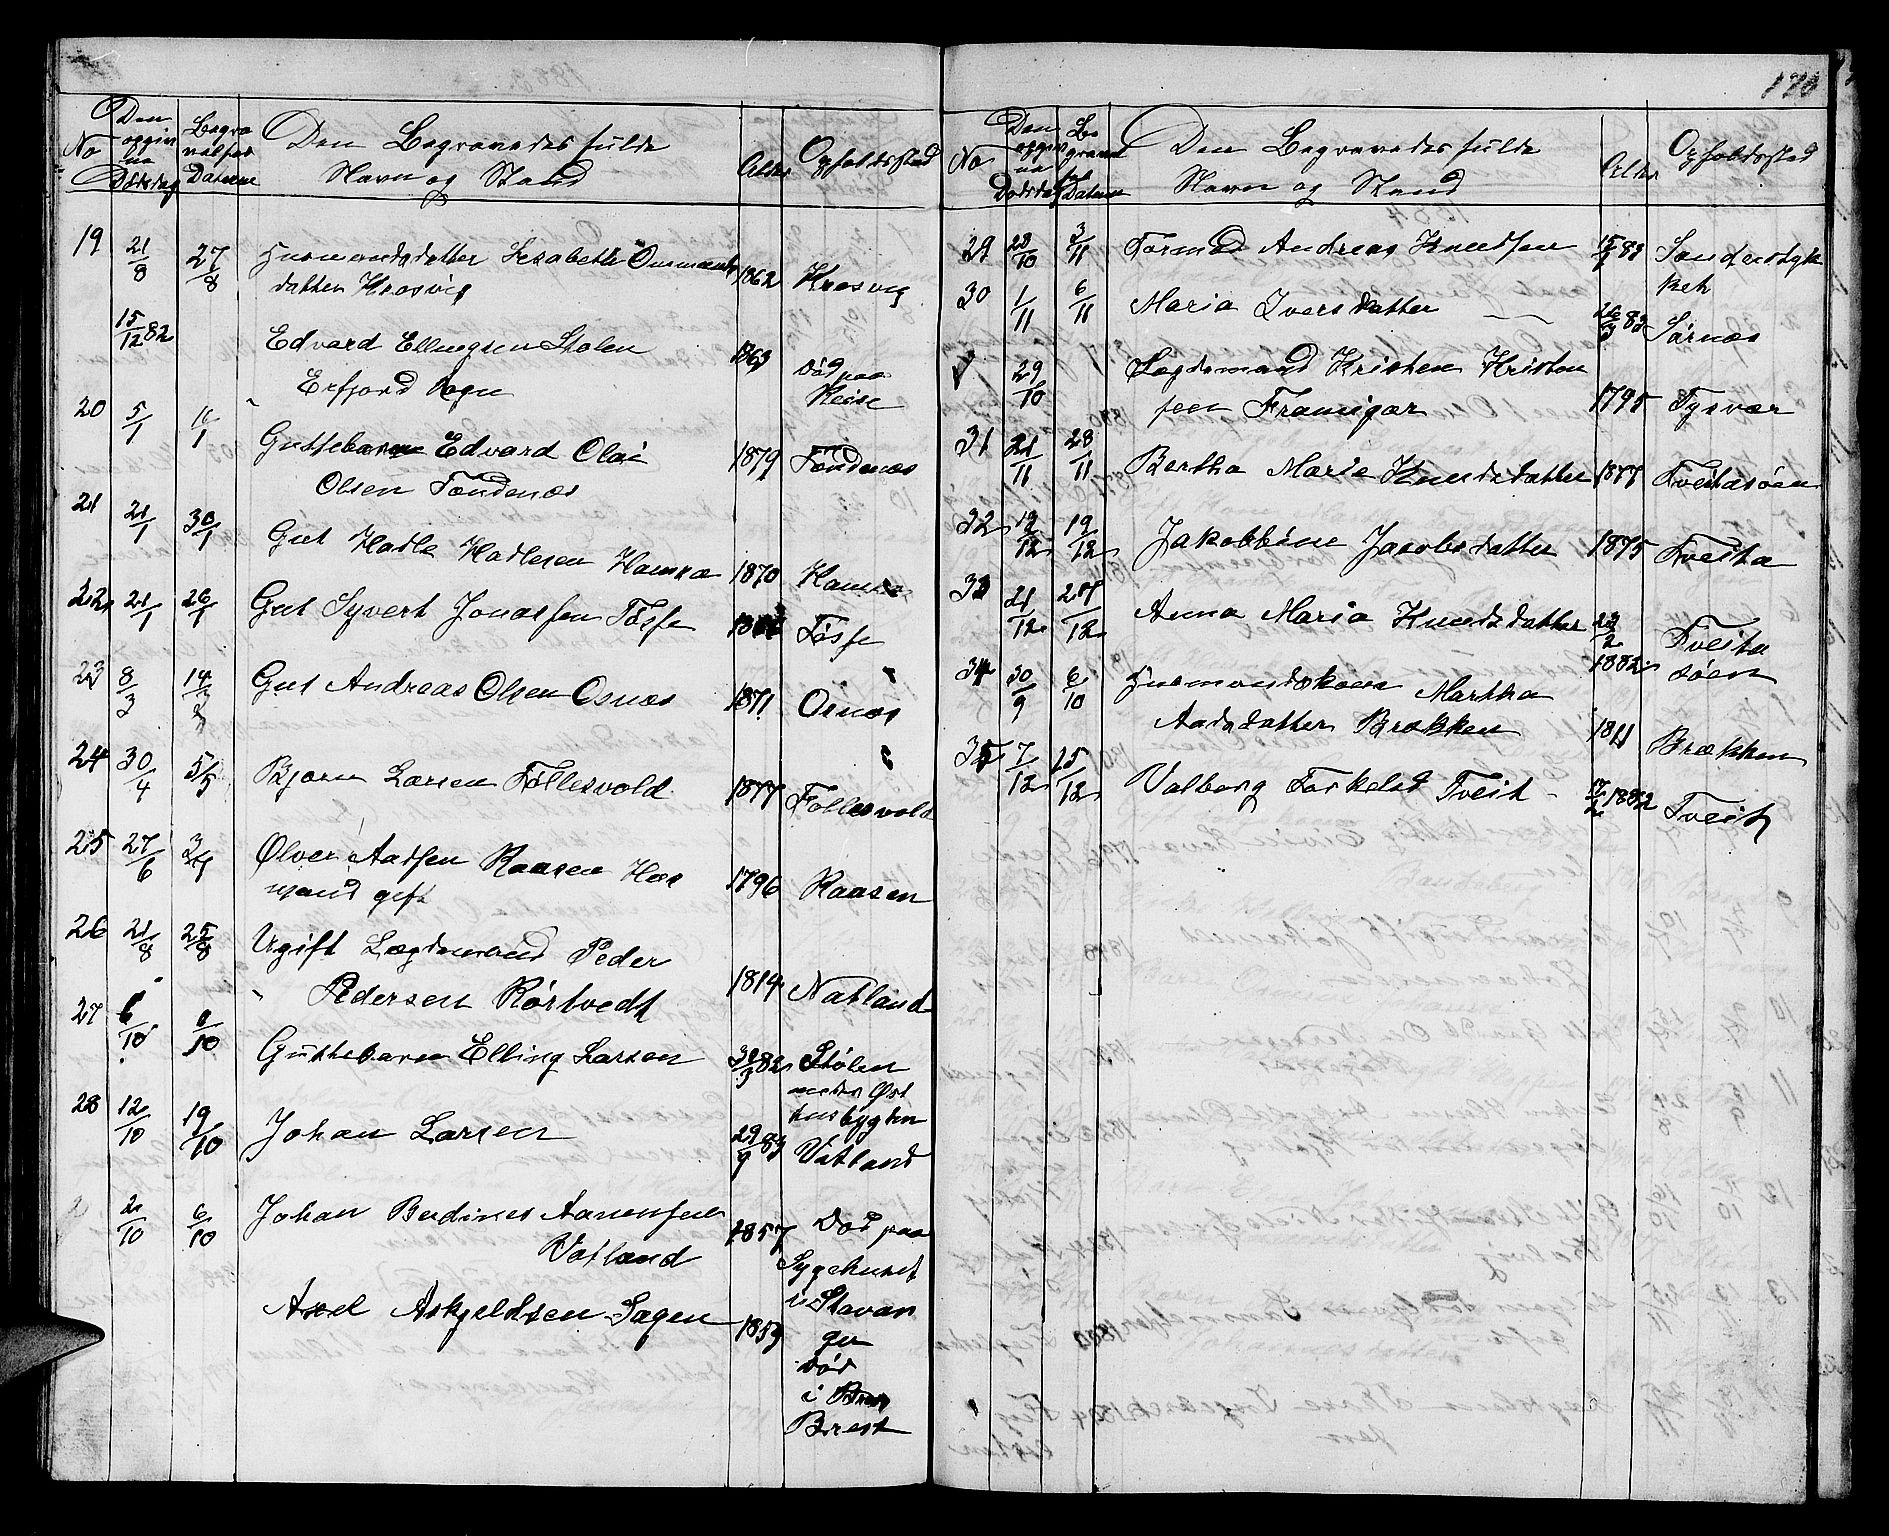 No Den opgivne Dødsdag Begravelses Datum Den Begravedes fulde Navn og Stand Alder Opholdssted
19 21/8 27/8 Husmandsdatter Lisabeth Ousmunds
datter Krosvig 1862 Krosvig
15/12 82 Edvard Ellingsen Stolen
Erfjord Sogn 1863 død paa
Reise
20 5/1 11/1 Guttebarn Edvard Olai
Olsen Tøndenæs 1879 Tøndenæs
21 21/1 30/1 Gut Hadle Hadlesen Hamræ 1870 Hamræ
22 21/1 26/1 Gut Syvert Jonassen Tøsse Tøsse
23 8/3 14/3 Gut Andreas Olsen Osnæs 1871 Osnæs
24 30/4 5/5 Bjørn Larsen Føllesvold 1877 Føllesvold
25 27/6 3/7 Ølver Aadsen Raasen Hus
mand gift 1796 Raasen
26 21/8 25/8 Ugift Lægdsmand Peder
Pedersen Rørtvedt 1814 Natland
27 6/10 Guttebarn Elling Larsen 82 Stølen
nedre Øst
husbygden
28 12/10 19/10 Johan Larsen 29/9 83 Vatland
2/10 6/10 Johan Berdines Aanensen
Vatland 1857 Død paa
Sygehuset
i Stavan
ger
Axel Askjeldsen Sagen 1859 død
i
Brest
178
No Den opgivne Dødsdag Begravelses Datum Den Begravedes fulde Navn og Stand Alder Opholdssted
29 28/10 3/11 Tormod Andreas Knudsen 83 Søndenstyk
keh
30 1/11 6/11 Maria Iversdatter 83 Sørnæs
29/10 Lægdsmand Kristen Kristen
sen Framigar 1795 Tysvær
31 21/11 28/11 Bertha Maria Knudsdatter 1877 Tveitasøen
32 12/12 19/12 Jakobbine Jacobsdatter 1875 Tveita
33 21/12 27/12 Anna Maria Knudsdatter 23/2
1882 Tveita
søen
34 30/9 6/10 Husmandskone Martha
Aadsdatter Brækken 1811 Brækken
35 7/12 15/12 Valborg Torkelsd Tveit 17/2 1882 Tveit